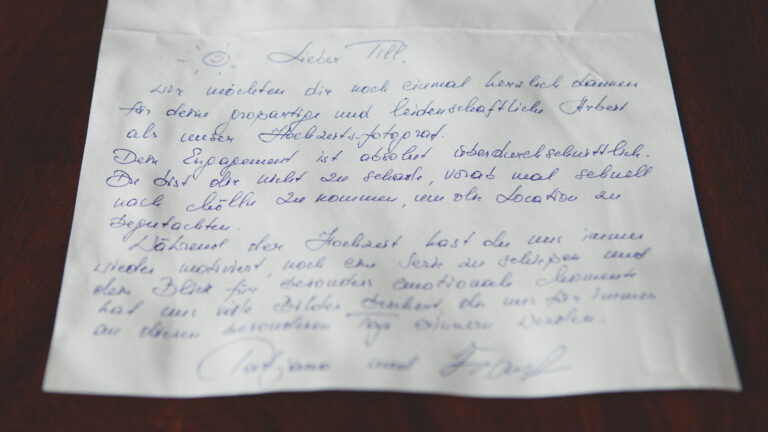 Lieber Till,
wir möchten dir noch einmal herzlich danken
für deine großartige und leidenschaftliche Arbeit
als unser Hochzeitsfotograf.
Dein Engagement ist absolut überdurchschnittlich.
Du bist dir nicht zu schade, vorab mal schnell
nach Mölln zu kommen, um die Location zu
begutachten.
Während der Hochzeit hast du uns immer
wieder motiviert, noch eine Serie zu schießen und
dein Blick für besonders emotionale Momente
hat uns viele Bilder beschert, die uns für immer
an diesen besonderen Tag erinnern werden.
Tatjana und